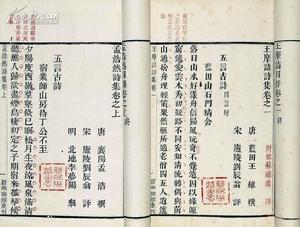 王摩詰詩集卷之一
唐 藍田王維 撰
宋 廬陵劉辰翁 評
五言古詩
藍田山石門精舍
落日山水好漾舟信歸風玩奇不覺遠因以緣源
窮遙愛雲木秀初疑路不同安知清流轉偶與前
山通捨舟理輕策果然愜所適老僧四五人逍遙
孟浩然詩集卷上
唐 襄陽孟浩 撰
宋 廬陵劉辰翁 評
明 北地李夢陽 參
五言古詩
宿業師山房待丁公不至
夕陽度西嶺羣壑倏已暝松月生夜涼風泉滿清
聽樵人歸欲盡煙鳥棲初定之子期宿來孤琴